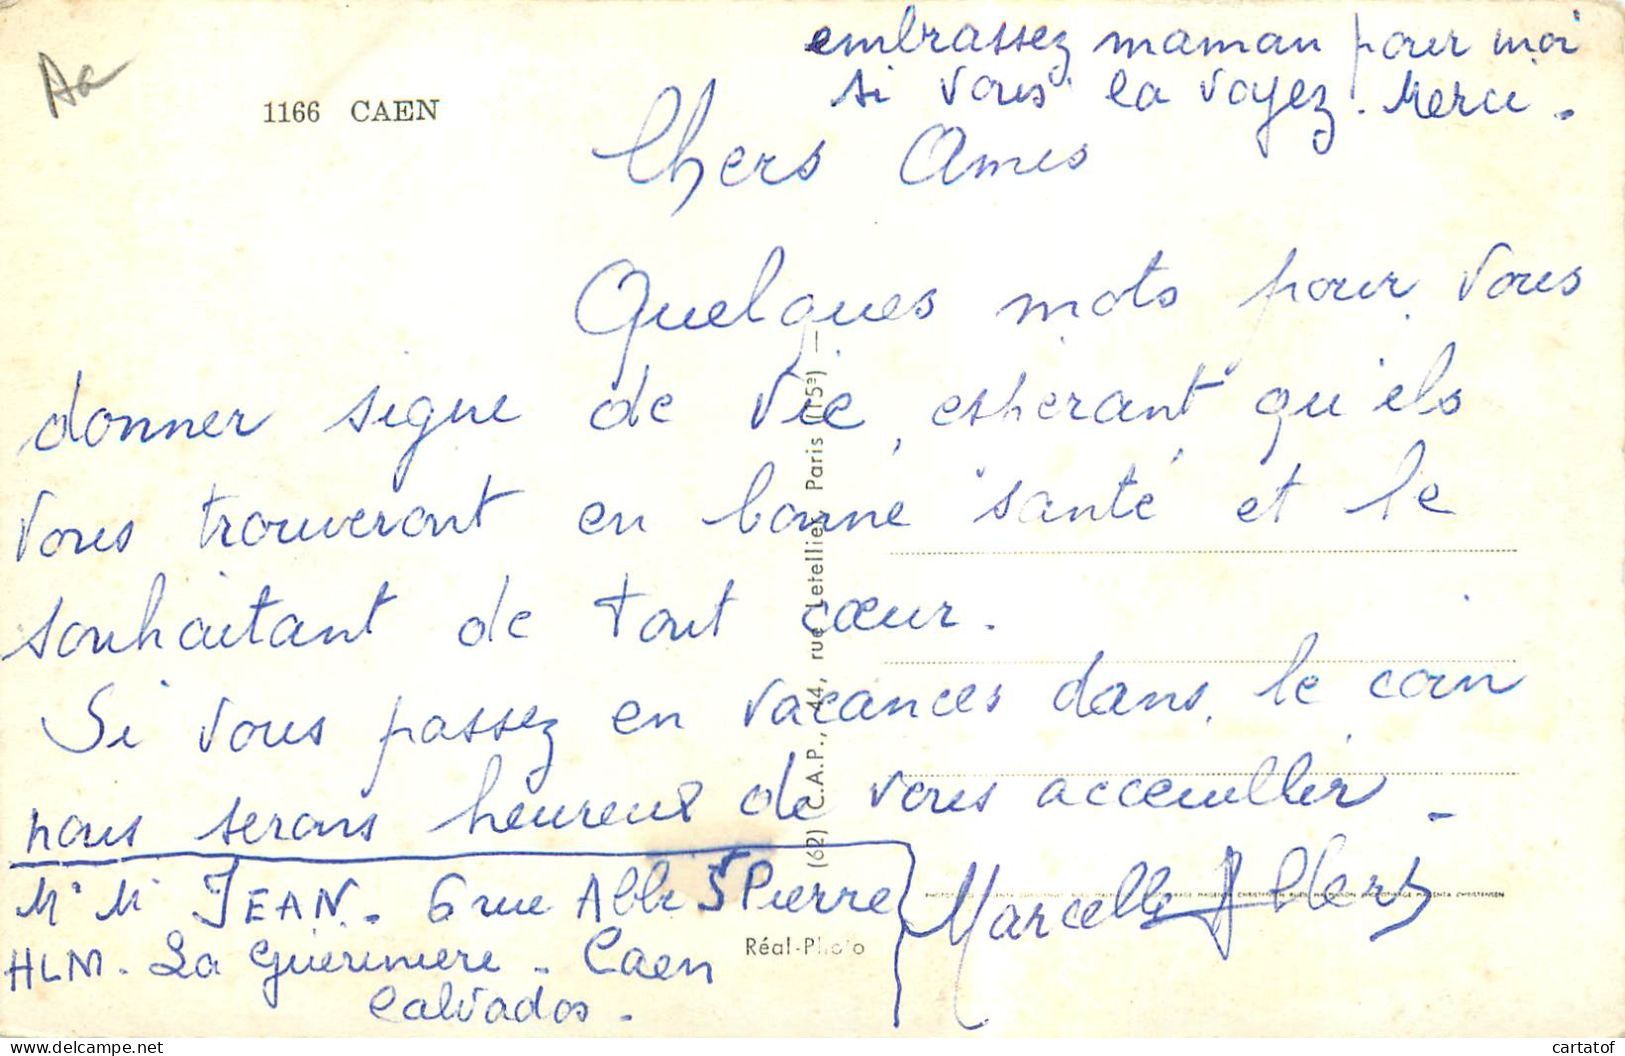 embrassez maman pour moi
si vous la voyez. Merci.
Aa
1166 CAEN
Chers Amis
Quelques mots pour vous
donner signe de vie, espérant qu'ils
vous trouveront en bonne santé et le
souhaitant de tout cœur.
Si vous passez en vacances dans le coin
nous serons heureux de vous acceuillir -
Mr M JEAN. 6 rue Abbé St Pierre
HLM. La Guérinière - Caen
Calvados.
Marcelle
(62) C.A.P., 44, rue Letellier, Paris (15e) —
Réal-Photo
delcampe.net
cartatof